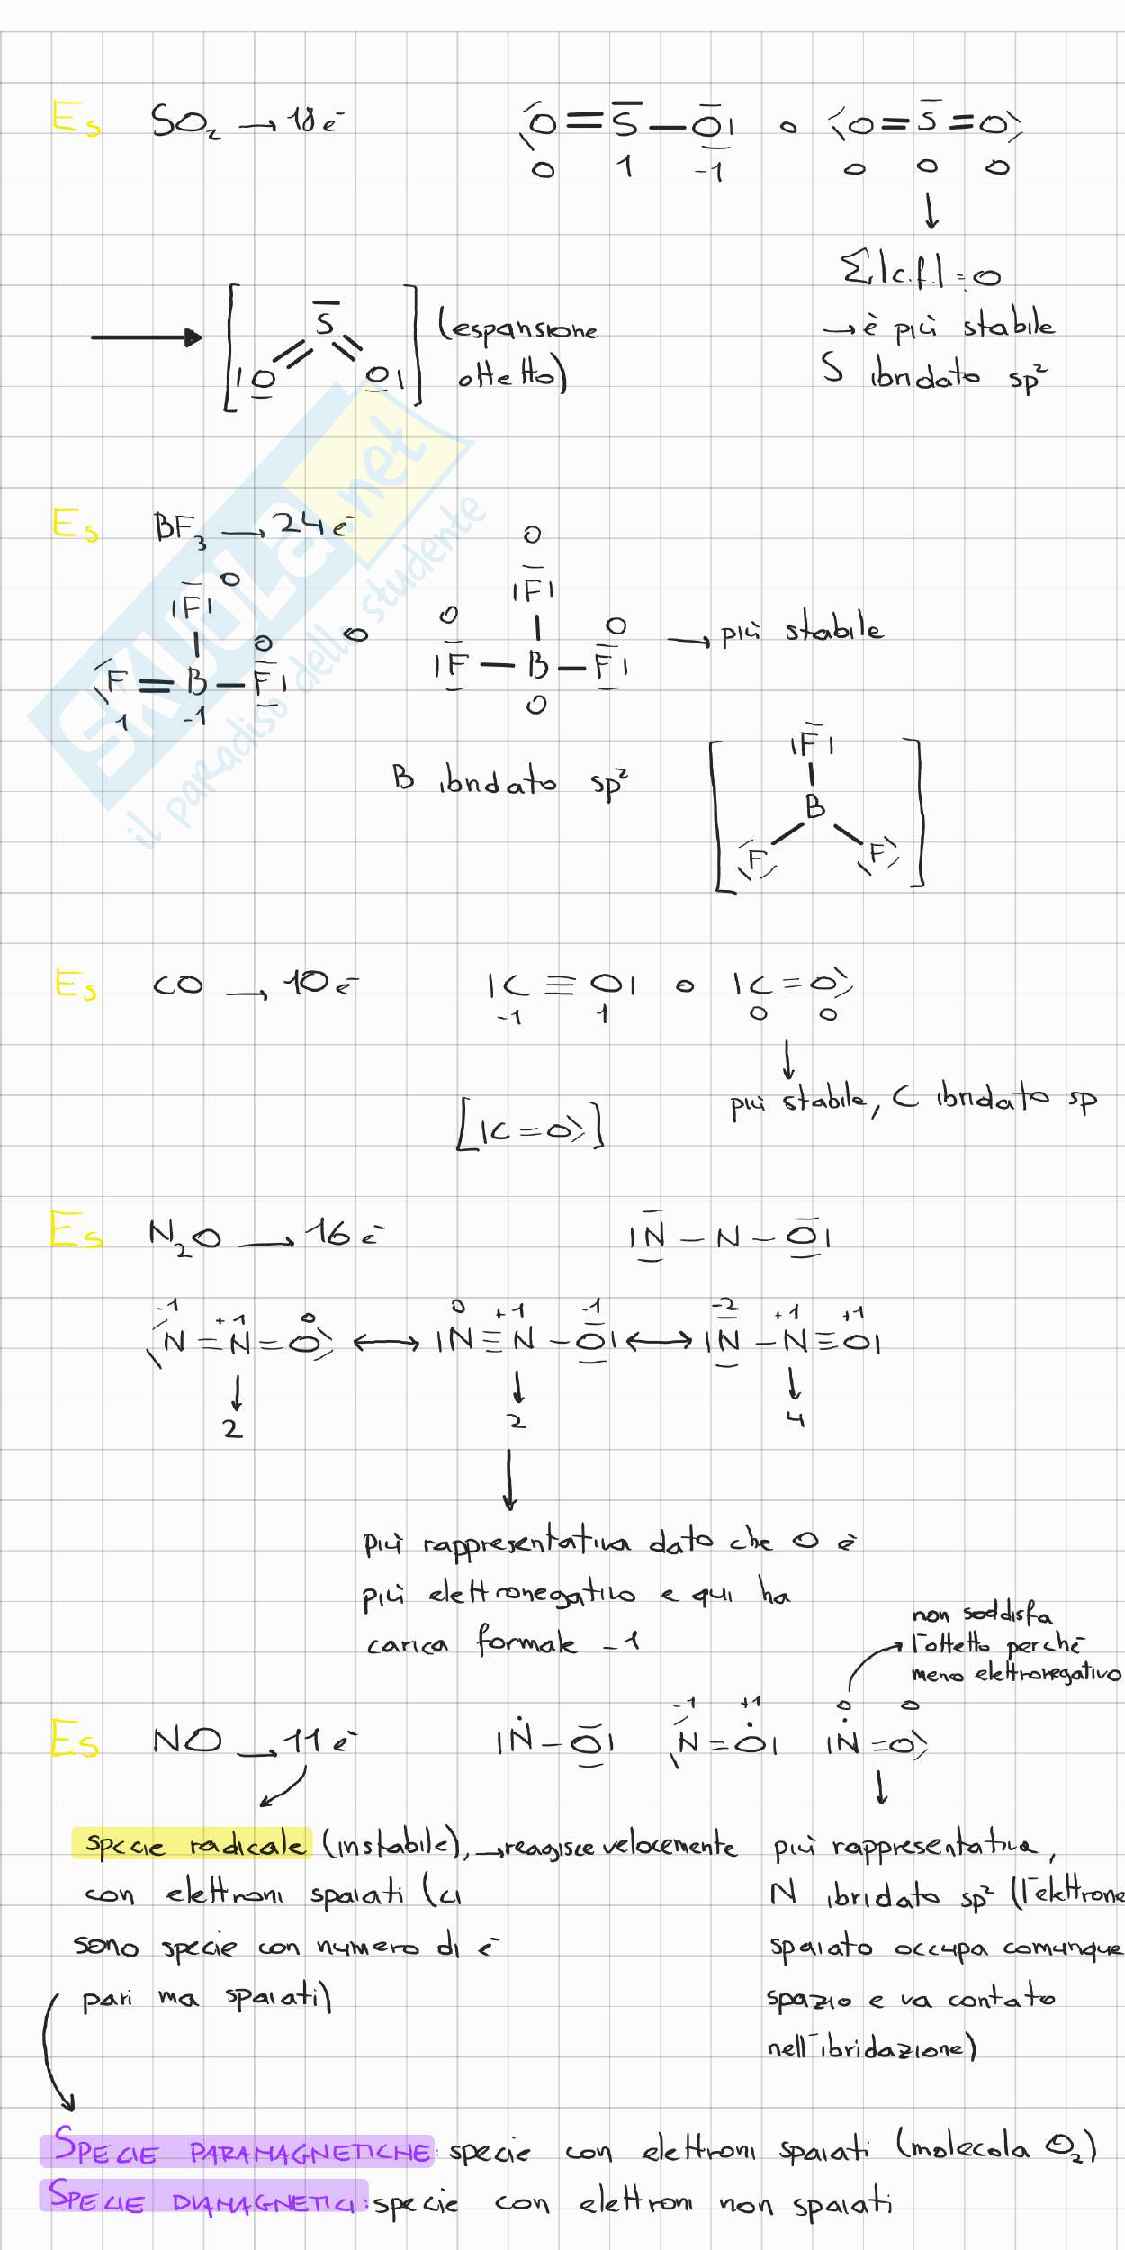 Es SO₂ → 18 e⁻ ⟨O=S̅—O̅| o ⟨O=S̅=O⟩
0 1 -1 0 0 0
↓
Σ|c.f.|=0
→ [ S̅ |O O| ] (espansione → è più stabile
ottetto) S ibridato sp²
SKUOLA.net
il paradiso dello studente
Es BF₃ → 24 e⁻
0
|F̅| 0 |F̅|
0 o 0 0 → più stabile
⟨F=B—F̅| |F̅—B—F̅|
1 -1 0
B ibridato sp² [ |F̅| B ⟨F⟩ ⟨F⟩ ]
Es CO → 10 e⁻ |C≡O| o |C=O⟩
-1 1 0 0
↓
più stabile, C ibridato sp
[|C=O⟩]
Es N₂O → 16 e⁻ |N̅—N—O̅|
-1 +1 0 0 +1 -1 -2 +1 +1
⟨N=N=O⟩ ↔ |N≡N—O̅| ↔ |N̅—N≡O|
↓ ↓ ↓
2 2 4
↓
più rappresentativa dato che O è
più elettronegativo e qui ha
carica formale -1
non soddisfa
l'ottetto perché
meno elettronegativo
-1 +1 0 0
Es NO → 11 e⁻ |Ṅ—O̅| ⟨N=Ȯ| |Ṅ=O⟩
↓
specie radicale (instabile), → reagisce velocemente
con elettroni spaiati (ci
sono specie con numero di e⁻
pari ma spaiati)
più rappresentativa,
N ibridato sp² (l'elettrone
spaiato occupa comunque
spazio e va contato
nell'ibridazione)
SPECIE PARAMAGNETICHE: specie con elettroni spaiati (molecola O₂)
SPECIE DIAMAGNETICI: specie con elettroni non spaiati